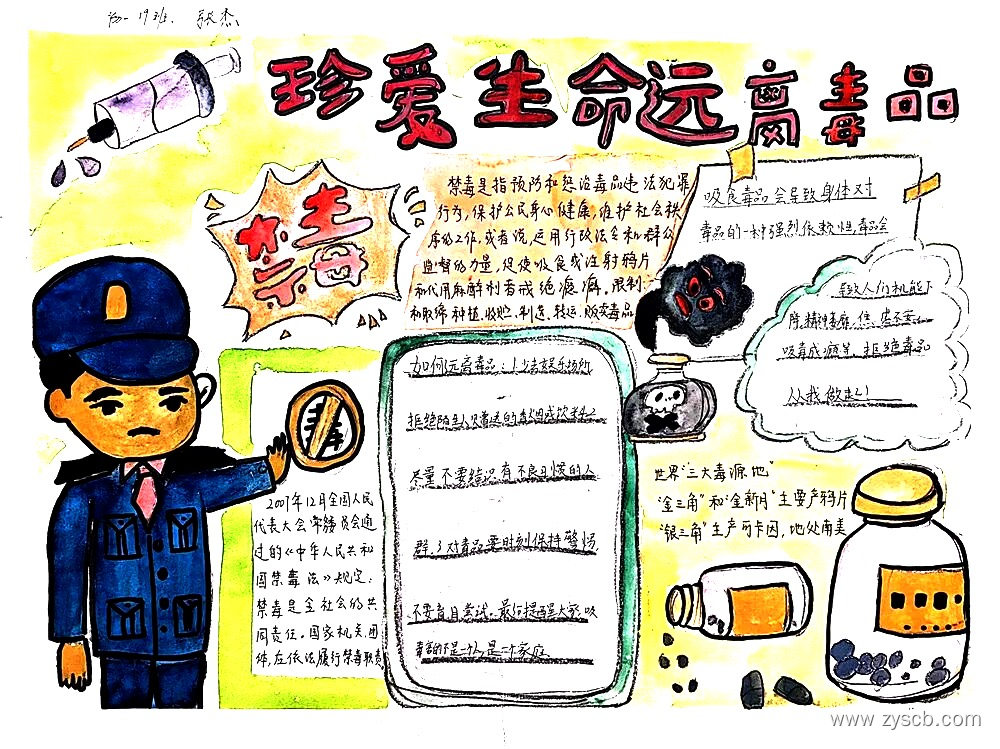 19班 张杰
珍爱生命远离毒品
禁毒
禁毒是指预防和惩治毒品违法犯罪
行为,保护公民身心健康,维护社会秩
序的工作,或者说,运用行政法令和群众
监督的力量,促使吸食或注射鸦片
和代用麻醉剂者戒绝瘾癖,限制
和取缔种植、吸贮、制造、转运、贩卖毒品
吸食毒品会导致身体对
毒品的一种强烈依赖性,毒品会
导致人们机能下
降,精神萎靡,
吸毒成瘾 拒绝毒品
从我做起!
禁毒
如何远离毒品:1少去娱乐场所
拒绝陌生人赠送的香烟或饮料2
尽量不要结识有不良习惯的人
群,3对毒品要时刻保持警惕,
不要盲目尝试,最后提醒大家,吸
毒害的不是一个人,是一个家庭
2007年12月全国人民
代表大会常务员会通
过的《中华人民共和
国禁毒法》规定:
禁毒是全社会的共
同责任。国家机关、团
体,应依法履行禁毒职责
世界"三大毒源地"
"金三角"和"金新月"主要产鸦片
"银三角"生产可卡因,地处南美
www.zyscb.com